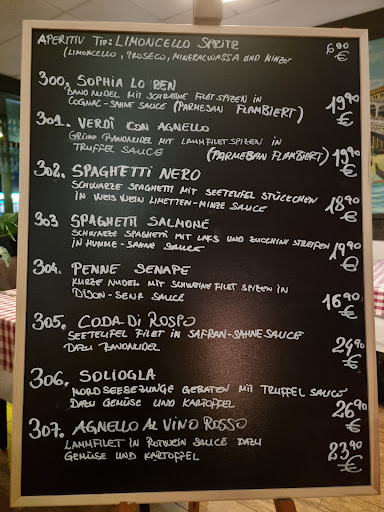 APERITIV TIP: LIMONCELLO SPRITZ 6⁹⁰
(LIMONCELLO, PROSECO, MINERALWASSA UND MINZE)
300. SOPHIA LOREN
BANDNUDEL MIT SCHWEINE FILET SPIZEN IN
COGNAC-SAHNE SAUCE (PARMESAN FLAMBIERT) 19⁹⁰ €
301. VERDÌ CON AGNELLO
GRÜNE BANDNUDEL MIT LAMMFILET SPITZEN IN
TRUFFEL SAUCE (PARMESAN FLAMBIERT) 19⁹⁰ €
302. SPAGHETTI NERO
SCHWARZE SPAGHETTI MIT SEETEUFEL STÜCKCHEN
IN WEISWEIN LIMETTEN-MINZE SAUCE 18⁹⁰ €
303 SPAGHETTI SALMONE
SCHWARZE SPAGHETTI MIT LAKS UND ZUCCHINI STREIFEN
IN HUMME-SAHNE SAUCE 19⁹⁰ €
304. PENNE SENAPE
KURZE NUDEL MIT SCHWEINE FILET SPIZEN IN
DIJON-SENF SAUCE 16⁹⁰ €
305. CODA DI ROSPO
SEETEUFEL FILET IN SAFRAN-SAHNE SAUCE
DAZU BANDNUDEL 24⁹⁰ €
306. SOLIOGLA
NORDSEESEZUNGE GEBRATEN MIT TRUFFEL SAUCE
DAZU GEMÜSE UND KARTOFFEL 26⁹⁰ €
307. AGNELLO AL VINO ROSSO
LAMMFILET IN ROTWEIN SAUCE DAZU
GEMÜSE UND KARTOFFEL 23⁹⁰ €